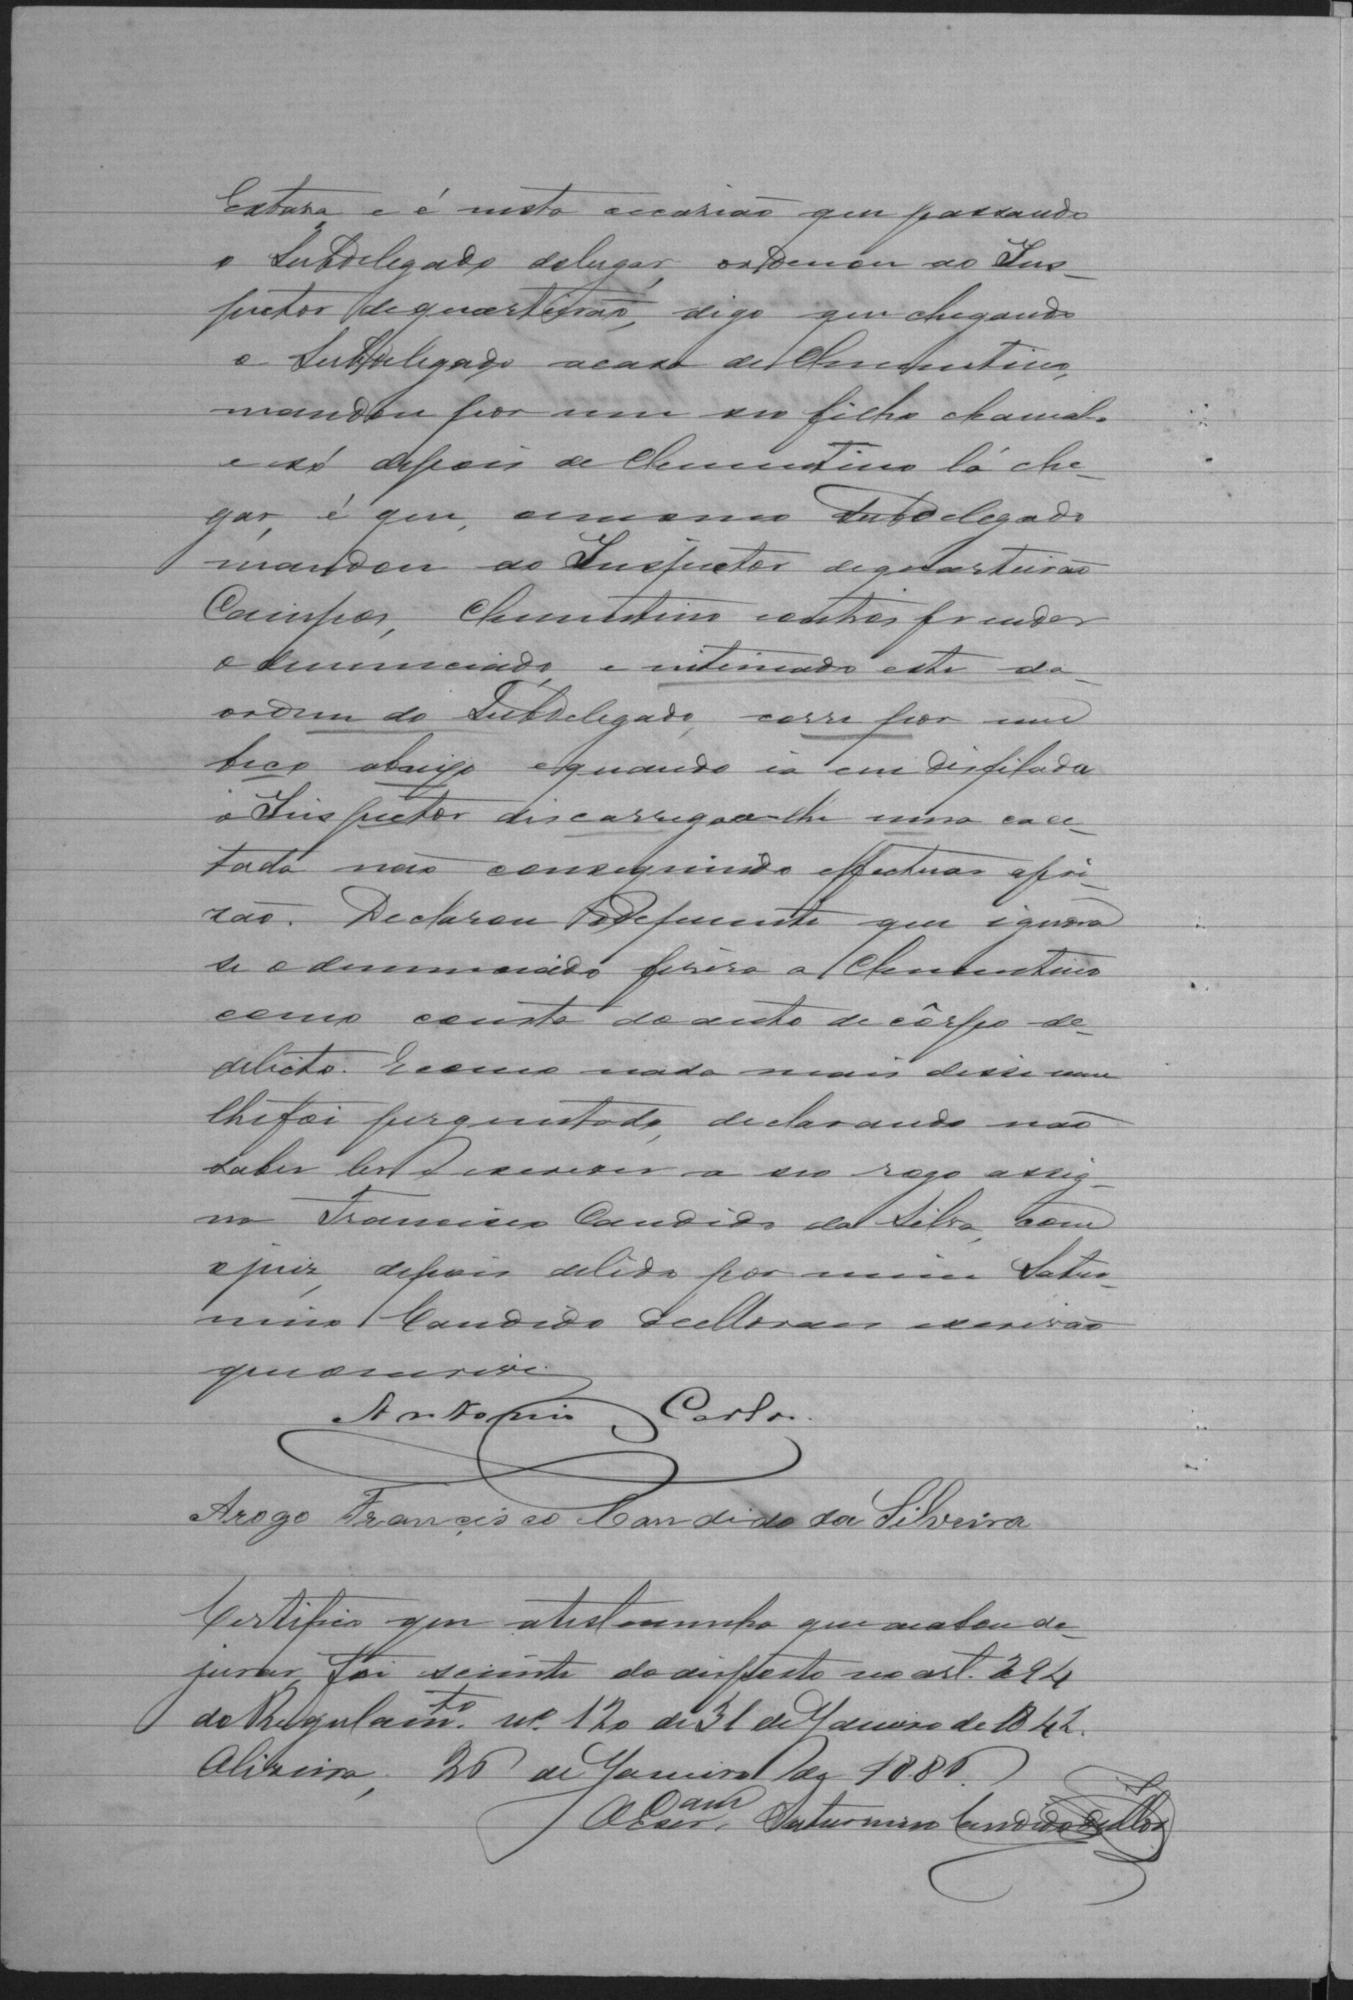 Estara, e é nesta occasião que passando
o Subdelegado do lugar, ordenou ao Ins-
pector de quarteirão, digo que chegando
o Subdelegado a casa de Clementino,
mandou por um seo filho chamal-o
e só depois de Clementino lá che-
gar, é que, o mesmo Subdelegado
mandou ao Inspector de quarteirão
Campos, Clementino e outros prender
o denunciado, e intimado este da
ordem do Subdelegado, corre por um
beco abaixo e quando ia em disfilada
o Inspector discarregou-lhe uma cace-
tada não conseguindo effectuar a pri-
zão. Declarou o depuente que ignora
se o denunciado ferira a Clementino
como consta do auto de côrpo de
delicto. E como nada mais disse nem
lhe foi perguntado, declarando não
saber ler e escrever a seo rogo assig-
na Francisco Candido da Silva, com
o juiz, depois de lido por mim Satur-
nino Candido de Moraes escrivão
que o escrevi.
Antonio Carlos
Arogo Francisco Candido da Silveira
Certifico que a testemunha que acabou de
jurar, foi sciente do disposto no art. 294
do Regulam.to nº. 120 de 31 de Janeiro de 1842.
Oliveira, 26 de Janeiro de 1886.
O Escr.am Saturnino Candido de Mor